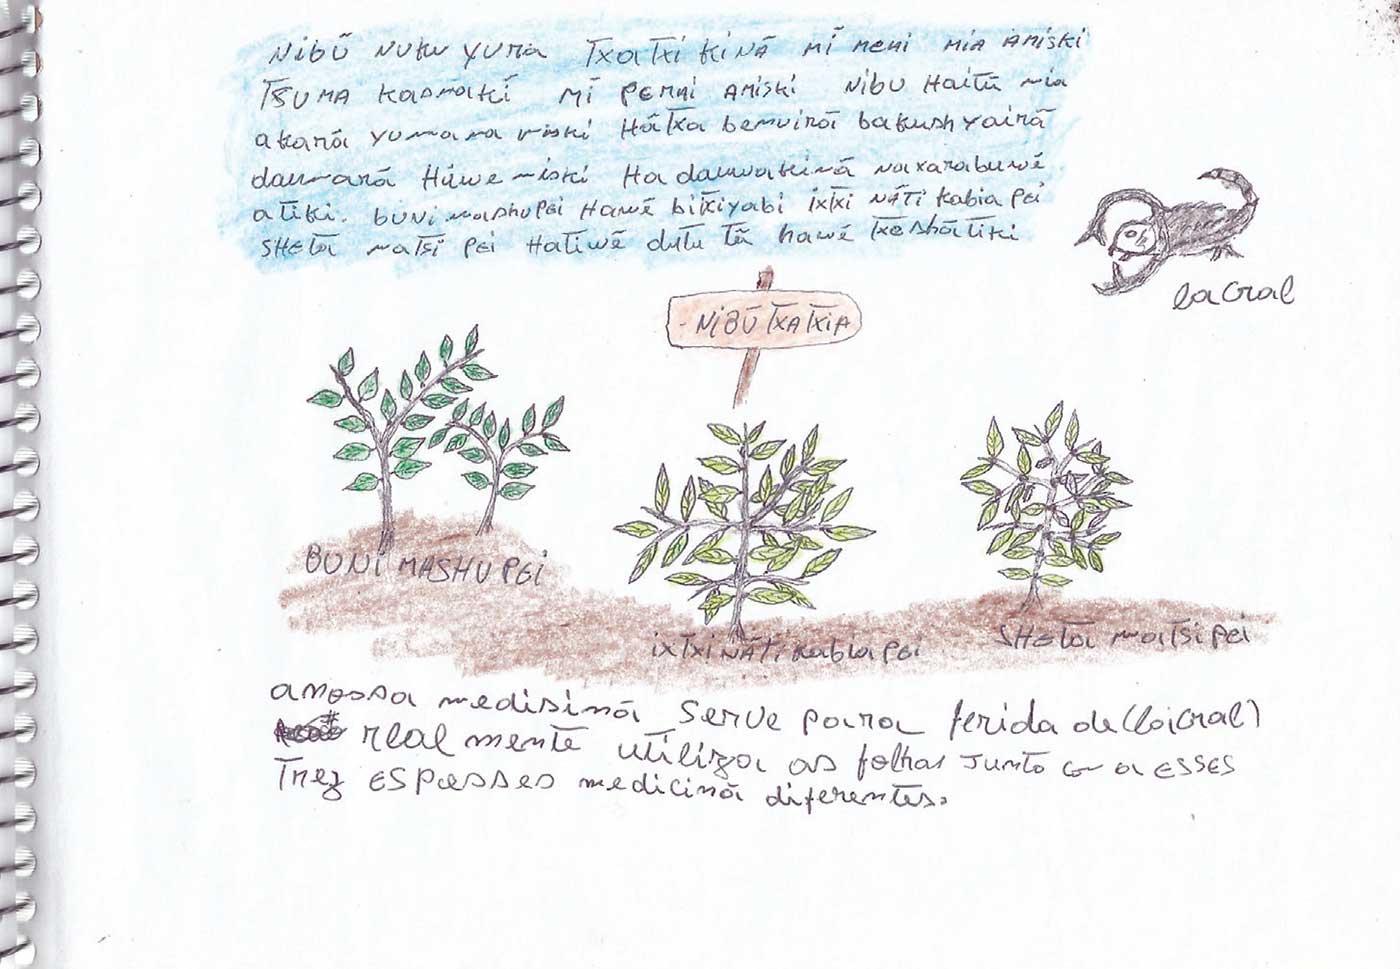 NiBŨ NUKU YURA TXATXI KINÃ MĨ MENI MIA AMISKI
TSUMA KASMAKĨ MĨ PEMNI AMISKI NIBU HAITŨ mia
akanã yumama miski Hãtxa bemvirã bakushyairã
daumarã Hũwe miski Ha dauwakinã naxarabuwẽ
atiki. BUNi mashuPEi Hawẽ bixiyabi ixtxi NÃTi kabia pei
SHETA matsi pei Hatiwẽ dutu tã hawẽ txeshãtiki
lacral
- NiBŨ TXATXiA
BUNi MASHU PEi
ixtxi NÃTi Kabia PEi
SHETa matsi PEi
anossa medisinã serve para ferida de (laicral)
realmente utiliza as folhas junto com a ESSES
Trez ESpæsses medicinã diferentes.